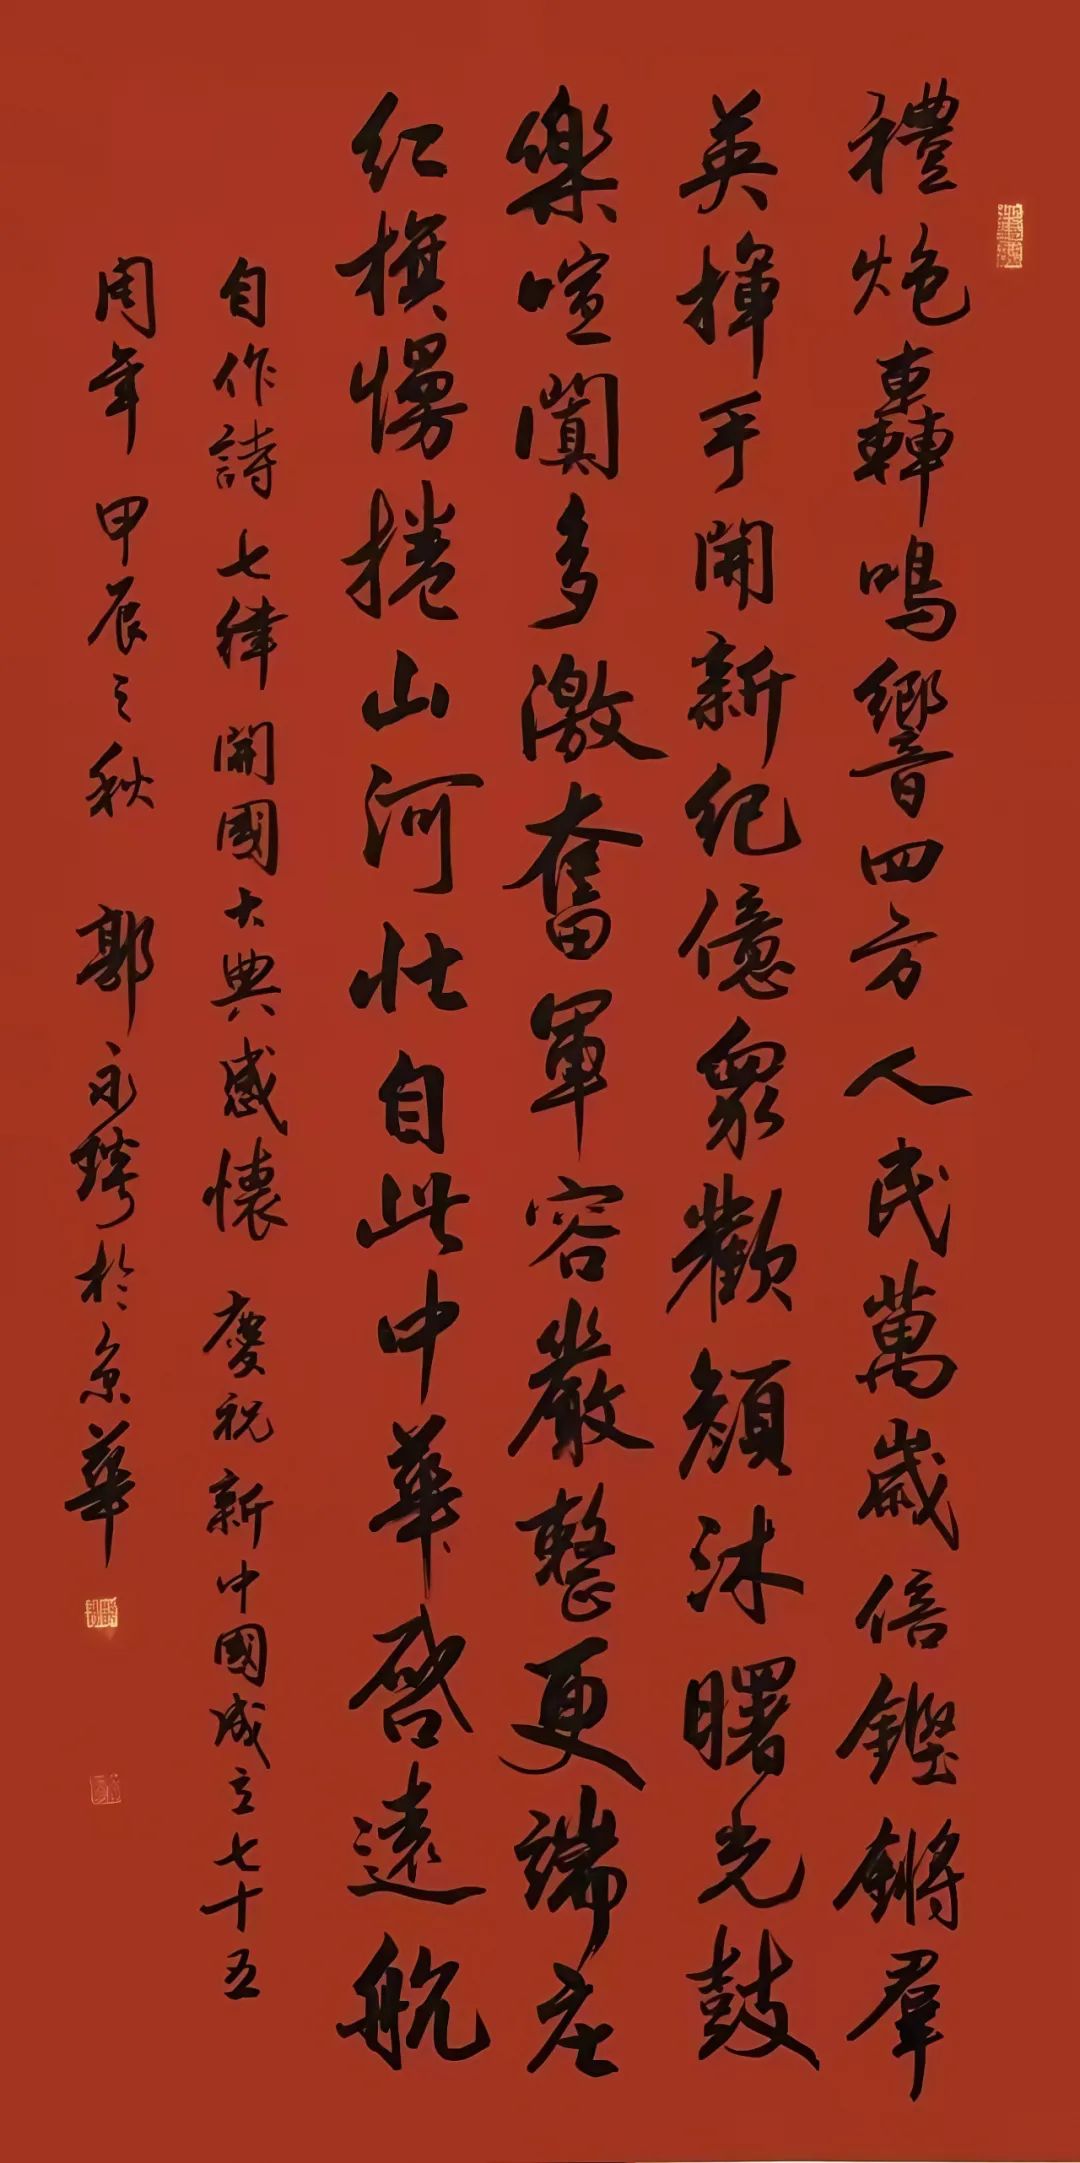 禮炮轟鳴響四方人民萬歲倍鏗鏘羣
英揮手開新紀億眾歡顏沐曙光鼓
樂喧闐多激奮軍容嚴整更端莊
红旗慢捲山河壮自此中華啓遠航
自作詩七律開國大典感懷 慶祝新中國成立七十五
周年 甲辰之秋 郭永琇於京華